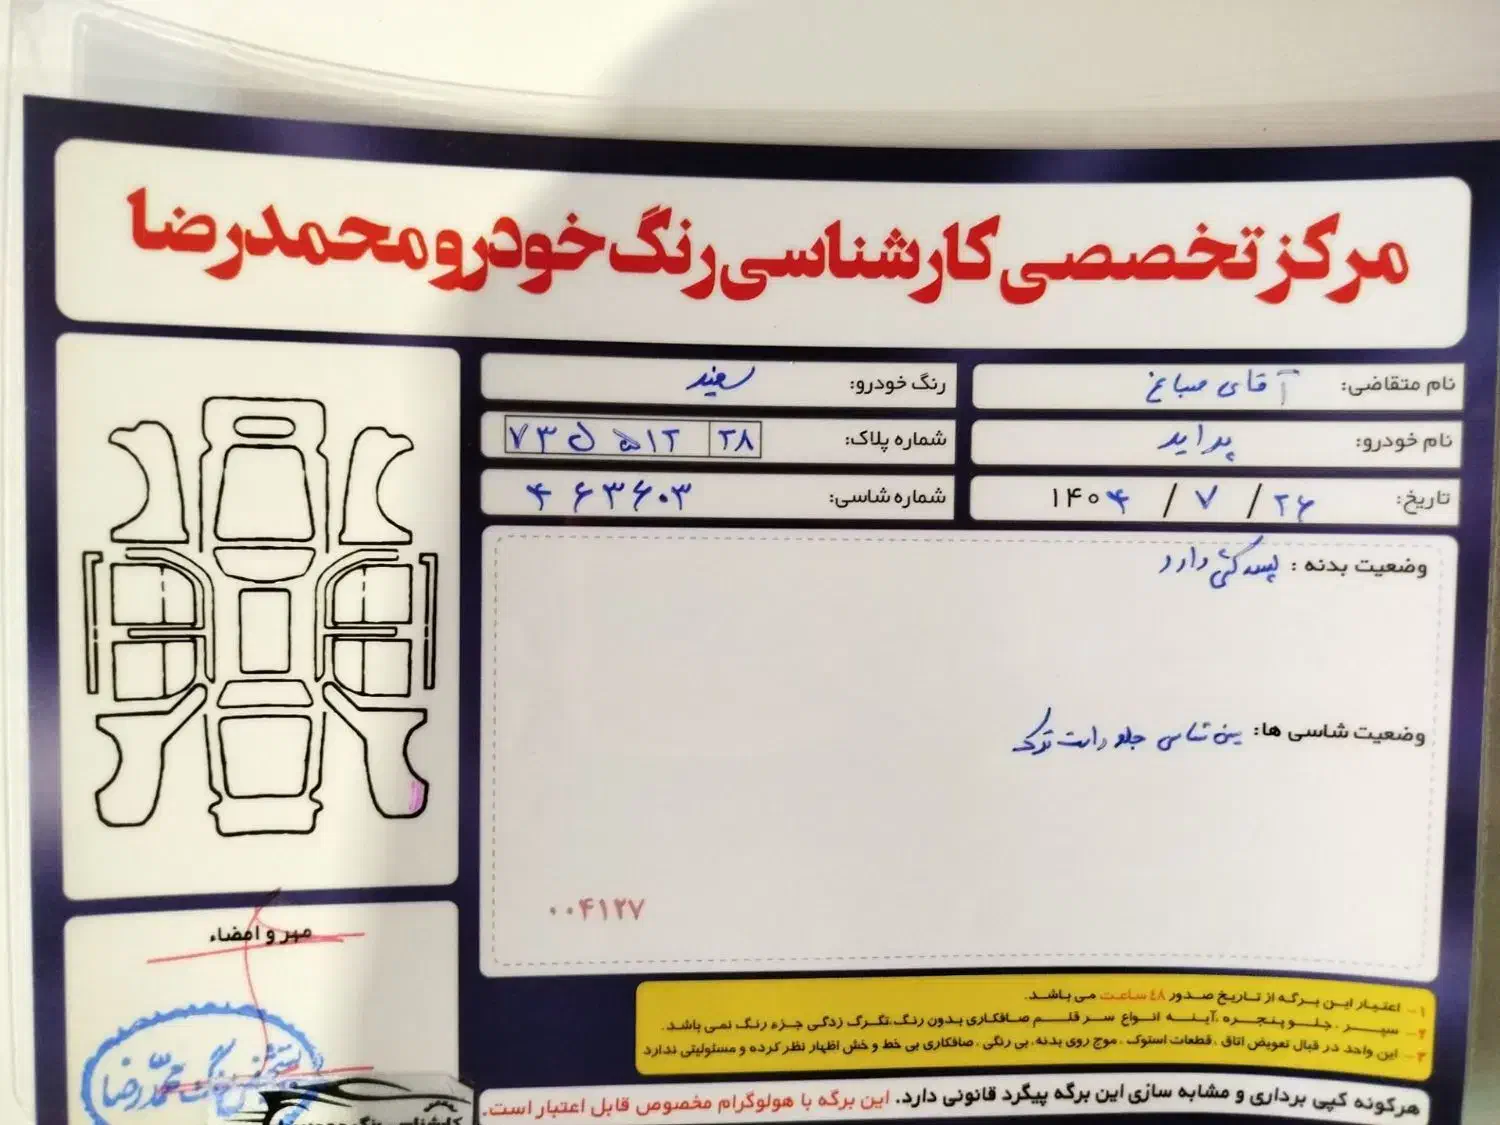 مرکز تخصصی کارشناسی رنگ خودرو محمدرضا
نام متقاضی: آقای صباغ
رنگ خودرو: سفید
نام خودرو: پراید
شماره پلاک: ۷۳ل۵۱۲ ۲۸
تاریخ: ۱۴۰۴ / ۷ / ۲۶
شماره شاسی: ۴۶۳۶۰۳
وضعیت بدنه : لیسه گیری دارد
وضعیت شاسی ها: سینی شاسی جلو راست ترک
۰۰۴۱۲۷
مهر و امضاء
۱- اعتبار این برگه از تاریخ صدور ۴۸ ساعت می باشد.
۲- سپر ، جلو پنجره ،آینه انواع سر قلم صافکاری بدون رنگ،تگرگ زدگی جزء رنگ نمی باشد.
۳- این واحد در قبال تعویض اتاق ، قطعات استوک ، موج روی بدنه، بی رنگی ، صافکاری بی خط و خش اظهار نظر نکرده و مسئولیتی ندارد
هرگونه کپی برداری و مشابه سازی این برگه پیگرد قانونی دارد. این برگه با هولوگرام مخصوص قابل اعتبار است.
تشخیص رنگ محمدرضا